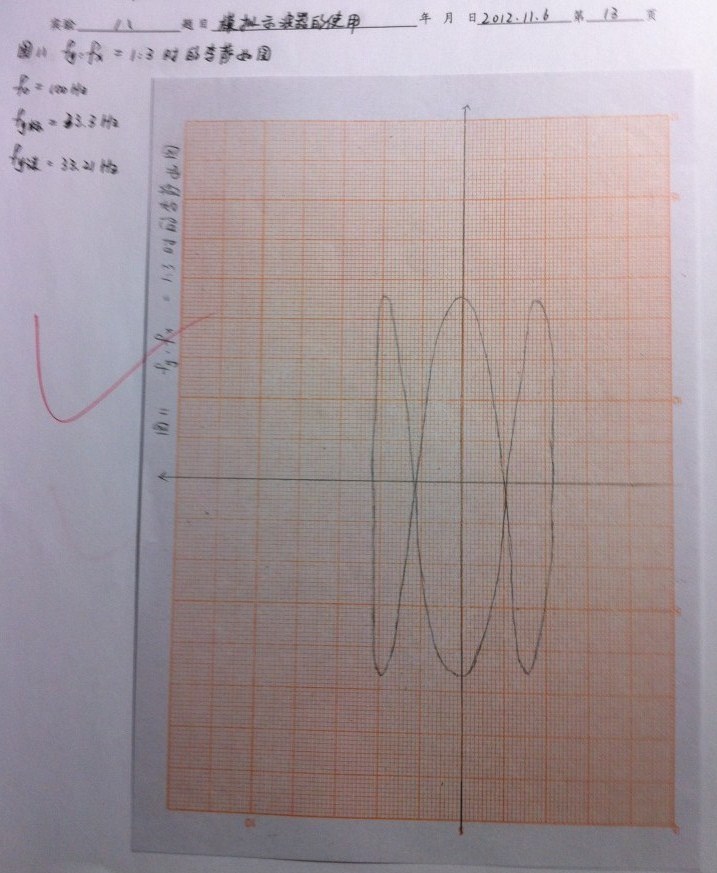 实验 11 题目 模拟示波器的使用 年 月 日 2012.11.6 第 13 页
图11 fy:fx = 1:3 时的李萨如图
fx = 100 Hz
fy标 = 33.3 Hz
fy读 = 33.21 Hz
图11 fy:fx = 1:3 时的李萨如图